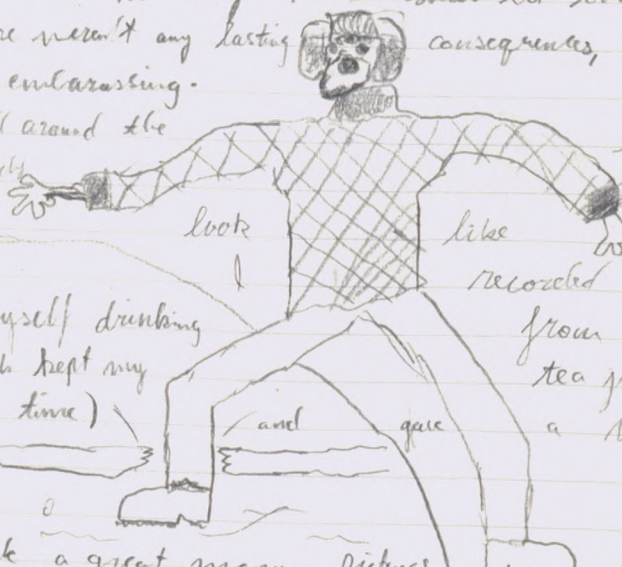 re weren't any lasting consequences,
embarassing.
around the
look like
I recorded
myself drinking from
kept my tea
time)
and gave a
a great many pictures